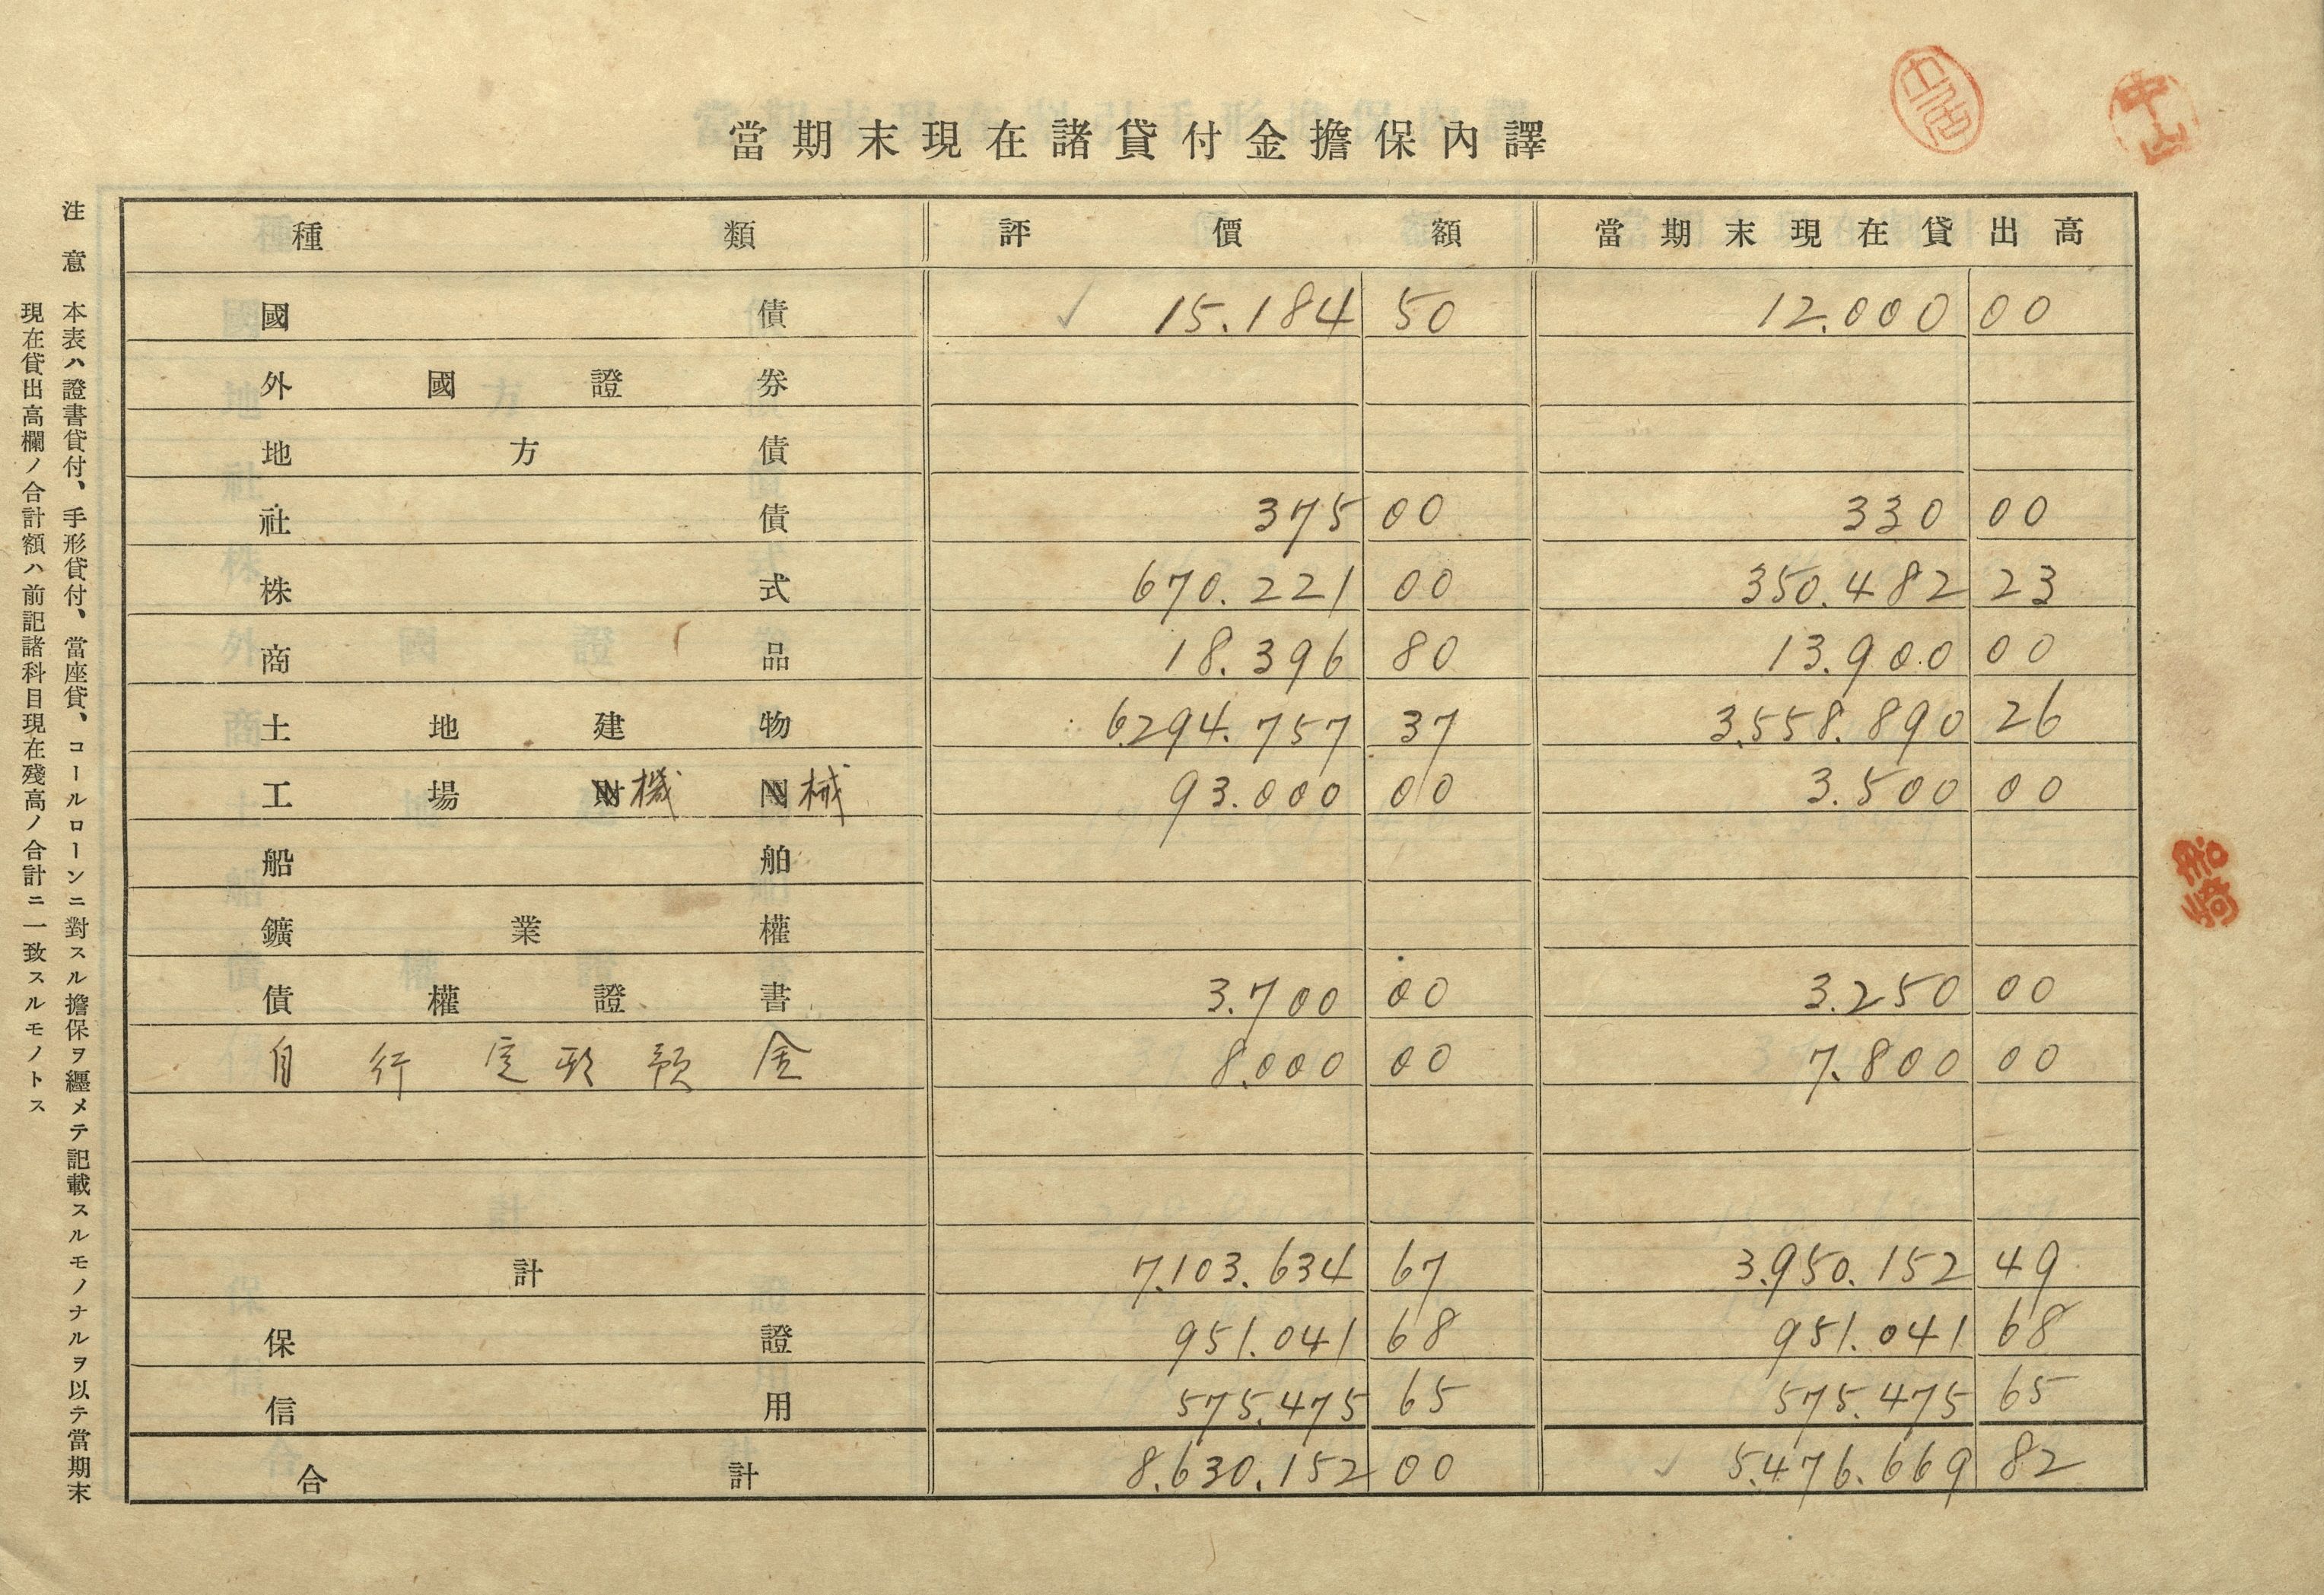 當期末現在諸貸付金擔保內譯
種類 評價額 當期末現在貸出高
國債 15.184 50 12.000 00
外國證券
地方債
社債 375 00 330 00
株式 670.221 00 350.482 23
商品 18.396 80 13.900 00
土地建物 6.294.757 37 3.558.890 26
工場機械 93.000 00 3.500 00
船舶
鑛業權
債權證書 3.700 00 3.250 00
自行定期預金 8.000 00 7.800 00
計 7.103.634 67 3.950.152 49
保證 951.041 68 951.041 68
信用 575.475 65 575.475 65
合計 8.630.152 00 5.476.669 82
注意 本表ハ證書貸付、手形貸付、當座貸、コールローンニ對スル擔保ヲ纒メテ記載スルモノナルヲ以テ當期末
現在貸出高欄ノ合計額ハ前記諸科目現在殘高ノ合計ニ一致スルモノトス
中山